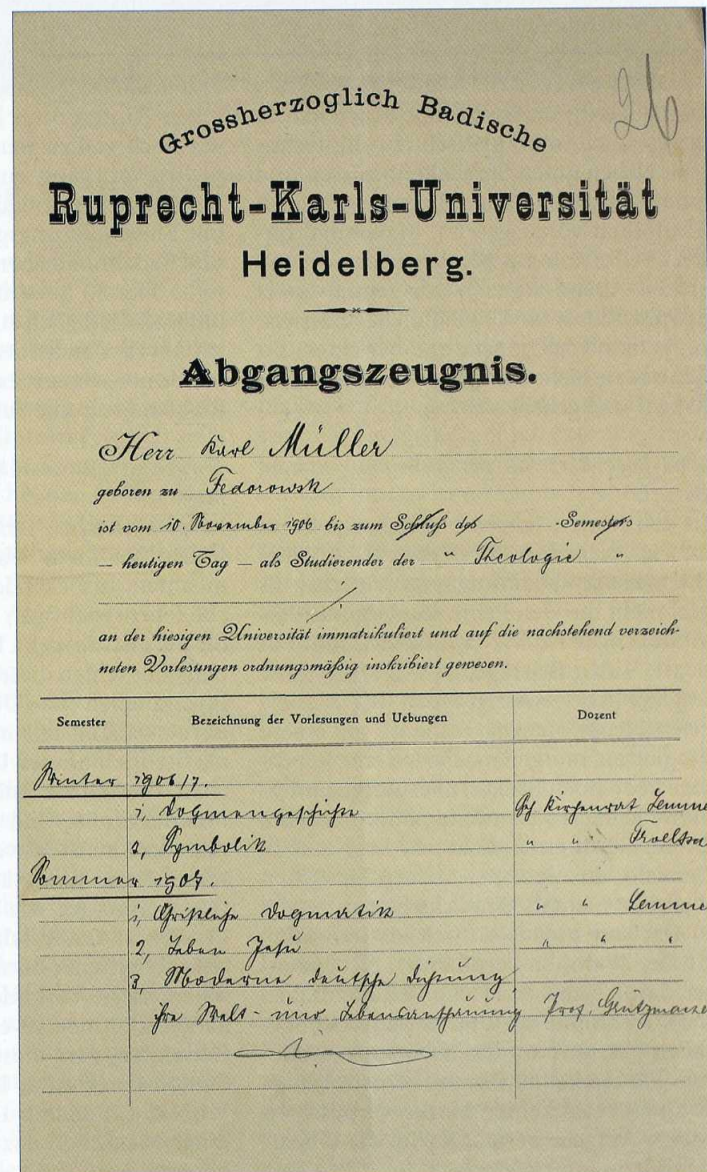 26
Grossherzoglich Badische
Ruprecht-Karls-Universität
Heidelberg.
Abgangszeugnis.
Herr Karl Müller
geboren zu Fedorowsk
ist vom 10. November 1906 bis zum Schluß des -Semesters
— heutigen Tag — als Studierender der " Theologie "
an der hiesigen Universität immatrikuliert und auf die nachstehend verzeich-
neten Vorlesungen ordnungsmäßig inskribiert gewesen.
Semester Bezeichnung der Vorlesungen und Uebungen Dozent
Winter 1906/7.
1, Dogmengeschichte Geh Kirchenrat Lemme
2, Symbolik " "
Sommer 1907.
1, Christliche Dogmatik " " Lemme
2, Leben Jesu " " "
3, Moderne deutsche Dichtung
ihre Welt- und Lebensanschauung Prof.